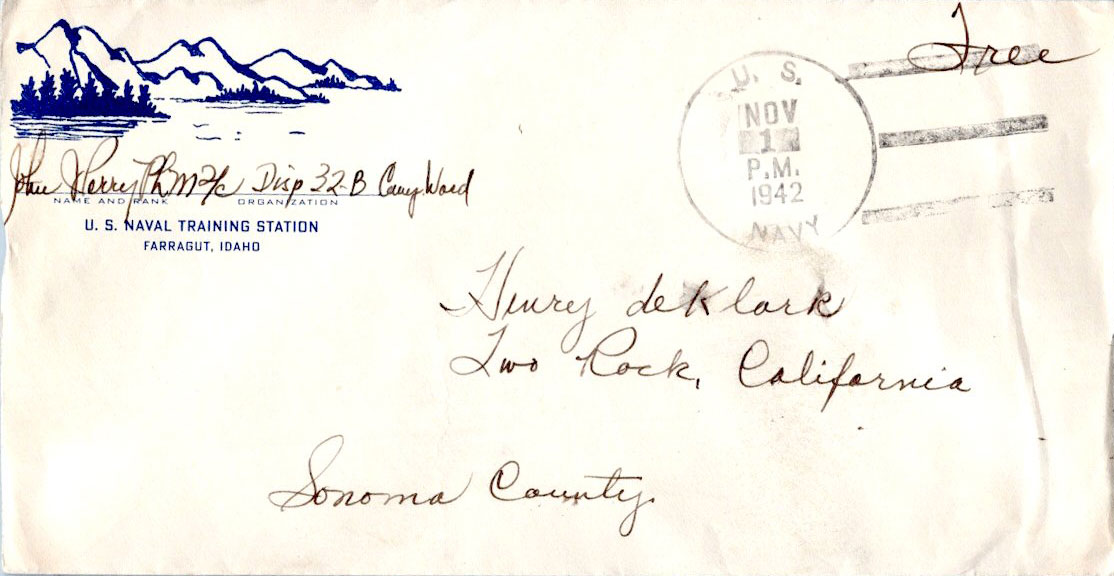 Free
U. S.
NOV
1
P.M.
1942
NAVY
John Herry PhM2/c Disp 32-B Camp Ward
NAME AND RANK ORGANIZATION
U. S. NAVAL TRAINING STATION
FARRAGUT, IDAHO
Henry deKlark
Two Rock, California
Sonoma County.